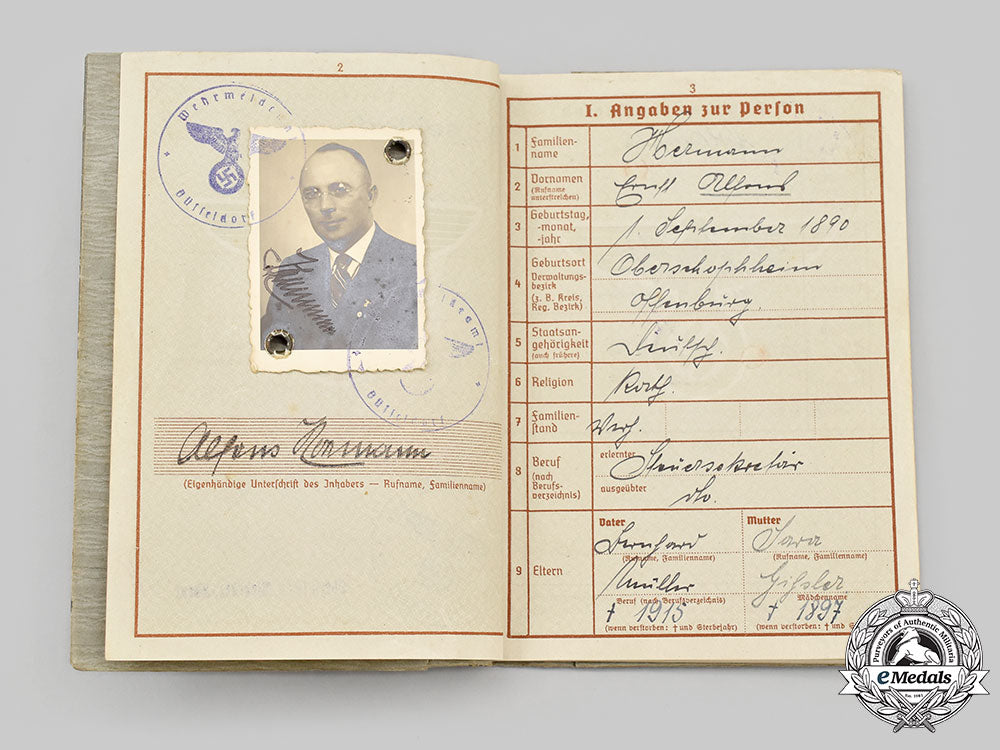 2
Wehrmeldeamt
Düsseldorf
Hermann
Düsseldorf
Alfons Hermann
(Eigenhändige Unterschrift des Inhabers — Rufname, Familienname)
3
I. Angaben zur Person
1 Familien-
name
Hermann
2 Vornamen
(Rufname
unterstreichen)
Ernst Alfons
3 Geburtstag,
-monat,
-jahr
1. September 1890
4 Geburtsort
Verwaltungs-
bezirk
(z. B. Kreis,
Reg. Bezirk)
Oberschopfheim
Offenburg.
5 Staatsan-
gehörigkeit
(auch frühere)
Deutsch.
6 Religion
Kath.
7 Familien-
stand
Verh.
8 Beruf
(nach
Berufs-
verzeichnis)
erlernter
Steuersekretär
ausgeübter
dto.
9 Eltern
Vater
Bernhard
(Rufname, Familienname)
Müller
Beruf (nach Berufsverzeichnis)
† 1915
(wenn verstorben: † und Sterbejahr)
Mutter
Sara
(Rufname, Familienname)
Mädchenname
† 1897
(wenn verstorben: † und S
Purveyors of Authentic Militaria
eMedals